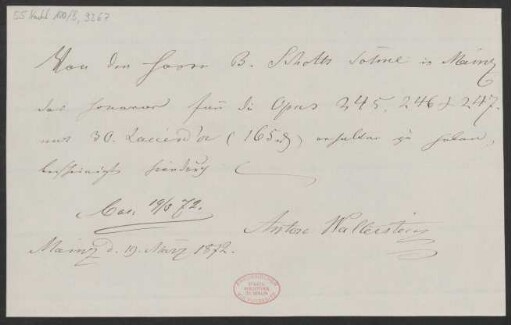 55 Nachl 100/B, 9267
Von den Herren B. Schotts Söhne in Mainz
das Honorar für die Opus 245. 246 & 247.
mit 30. Louisd'or (165 fl) erhalten zu haben,
bescheinigt hierdurch
Cas. 19/3 72.
Anton Wallerstein
Mainz d. 19. März 1872.